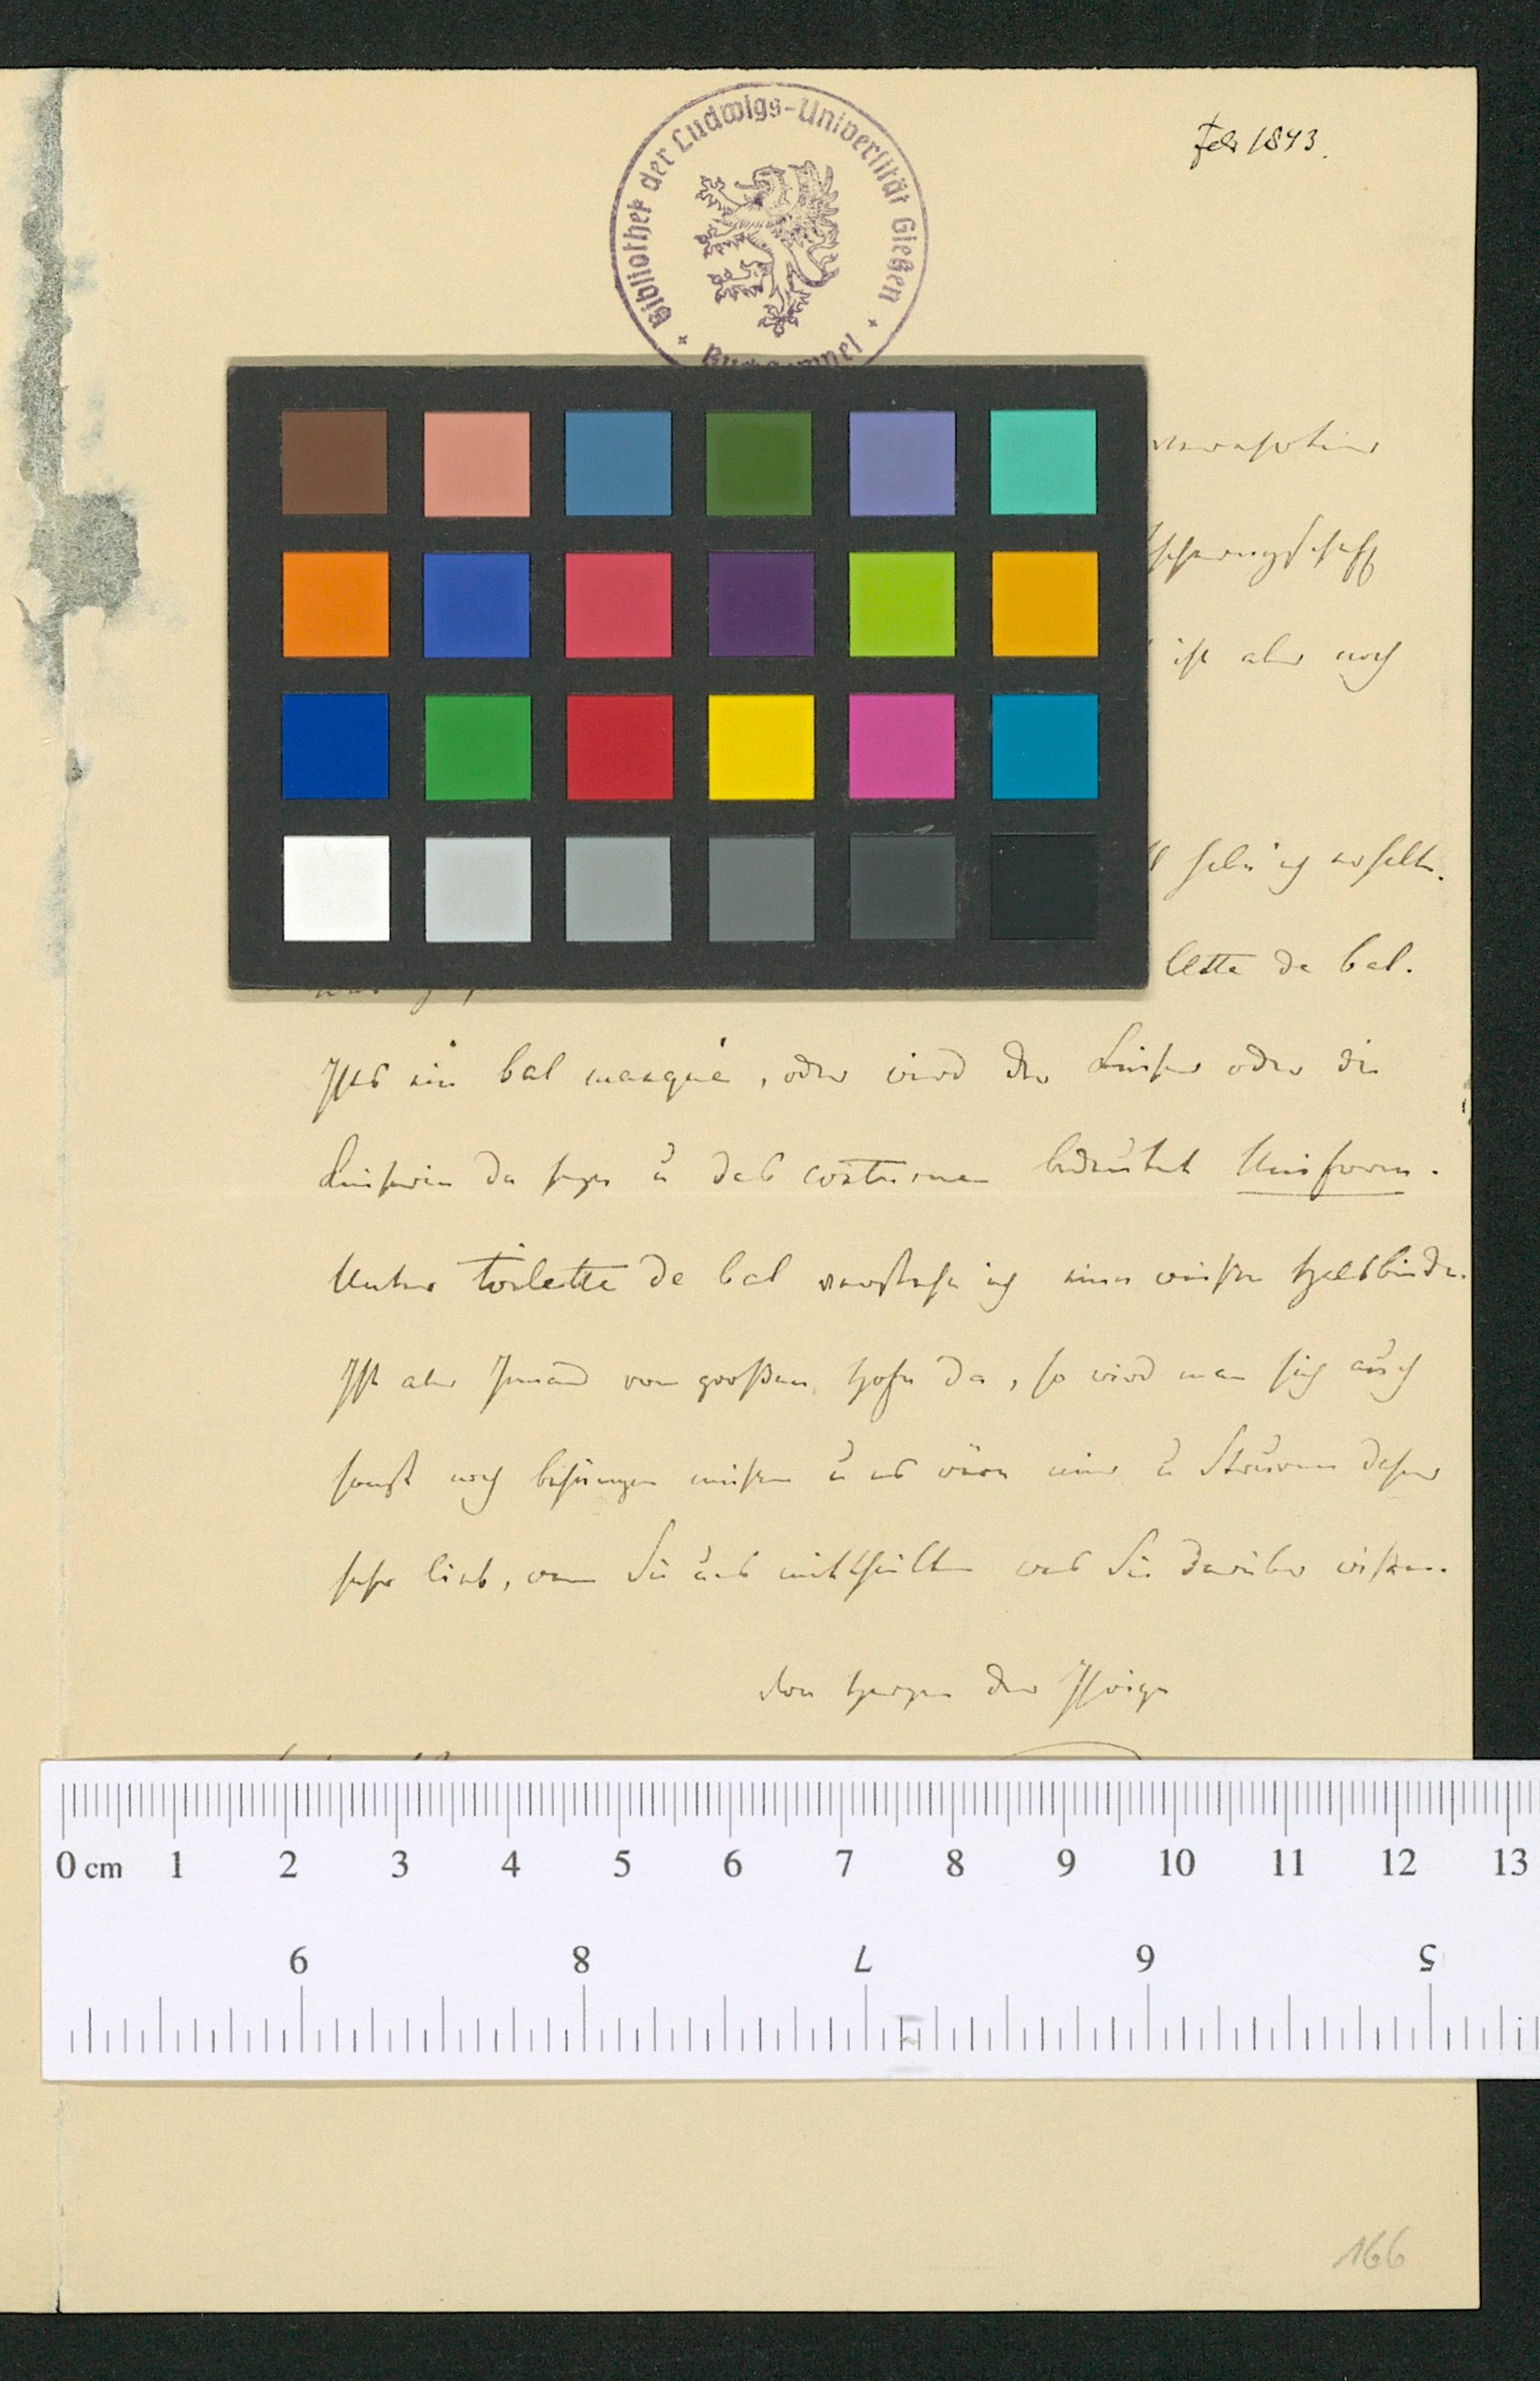 Feb 1843.
Bibliothek der Ludwigs-Universität Gießen
ist aber noch
hab' ich erhalten.
lette de bal.
Ists ein bal masqué, oder wird der Kaiser oder die
Kaiserin da seyn u das costume bedeutet Uniform.
Unter toilette de bal verstehe ich eine weiße Halsbinde.
Ist aber Jemand vom großen Hofe da, so wird man sich auch
sonst noch behängen müssen u es wäre mir u Struven daher
sehr lieb, wenn Sie uns mittheilten was Sie darüber wissen.
Von Herzen der Ihrige
0 cm 1 2 3 4 5 6 7 8 9 10 11 12 13
9 8 7 6 5
166